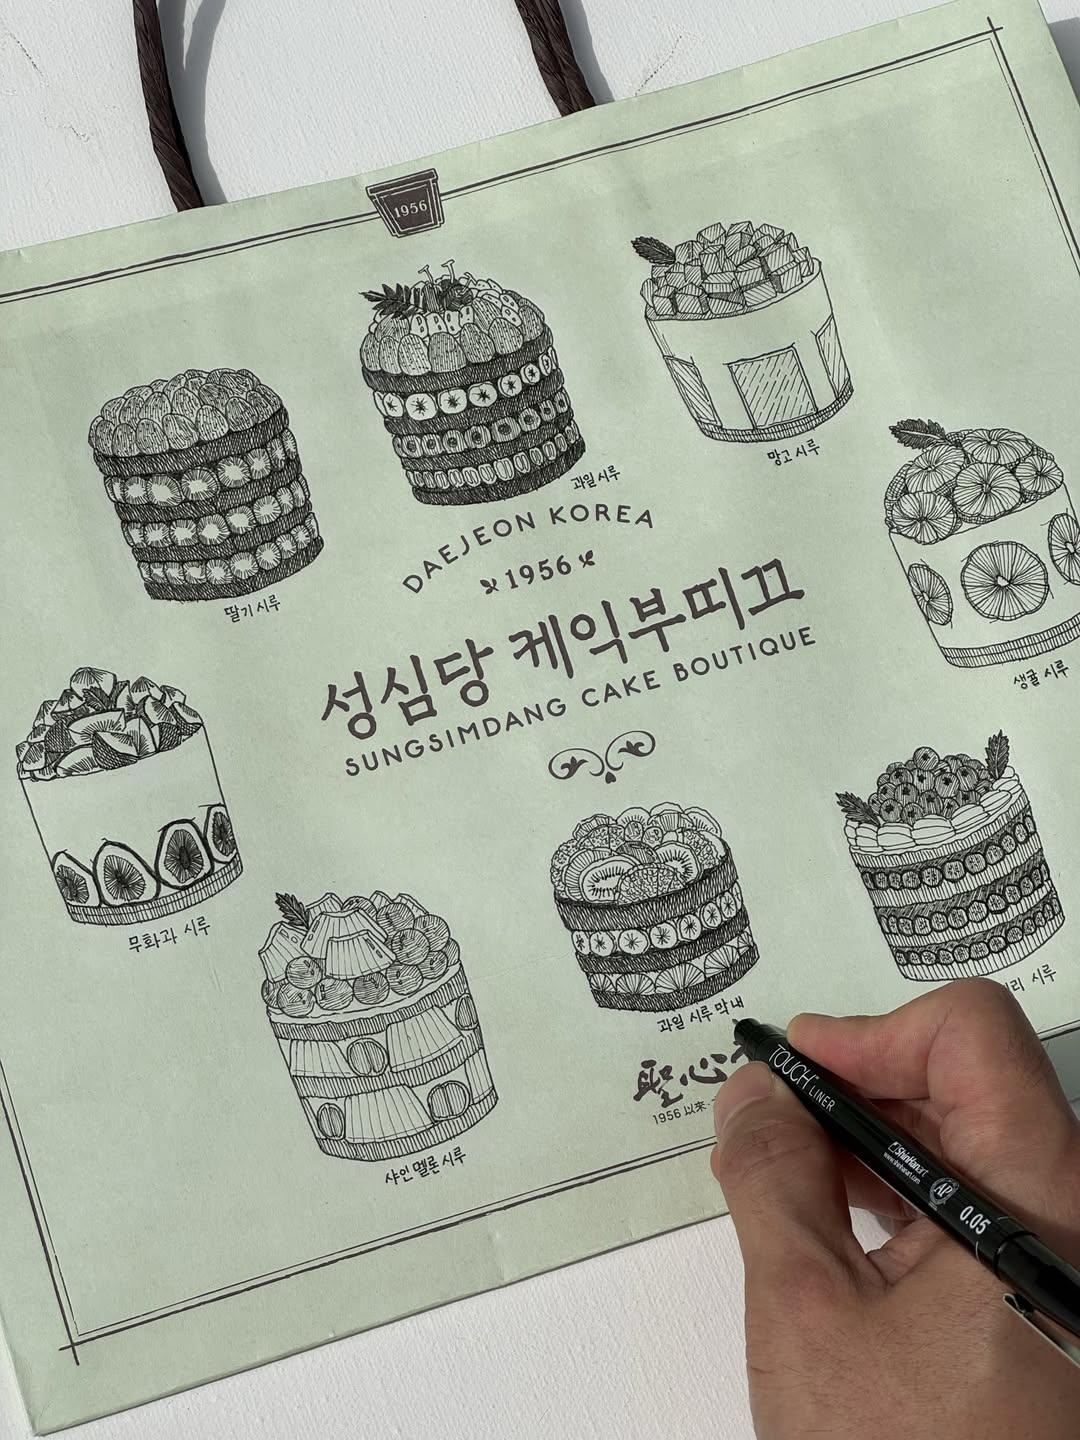 1956
망고 시루
과일시루
딸기 시루
DAEJEON KOREA
1956
성심당 케익부띠끄
SUNGSIMDANG CAKE BOUTIQUE
생귤 시루
무화과 시루
시루
과일 시루 막내
샤인 멜론 시루
聖心
1956 以來
TOUCH LINER
ShinHanart
www.shinhanart.com
AP
0.05